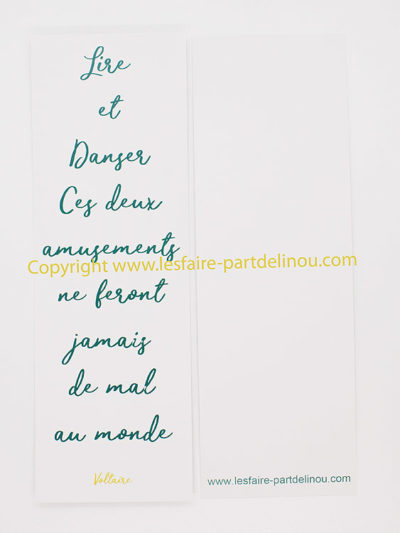 Lire
et
Danser
Ces deux
amusements
Copyright www.lesfaire-partdelinou.com
ne feront
jamais
de mal
au monde
Voltaire
www.lesfaire-partdelinou.com